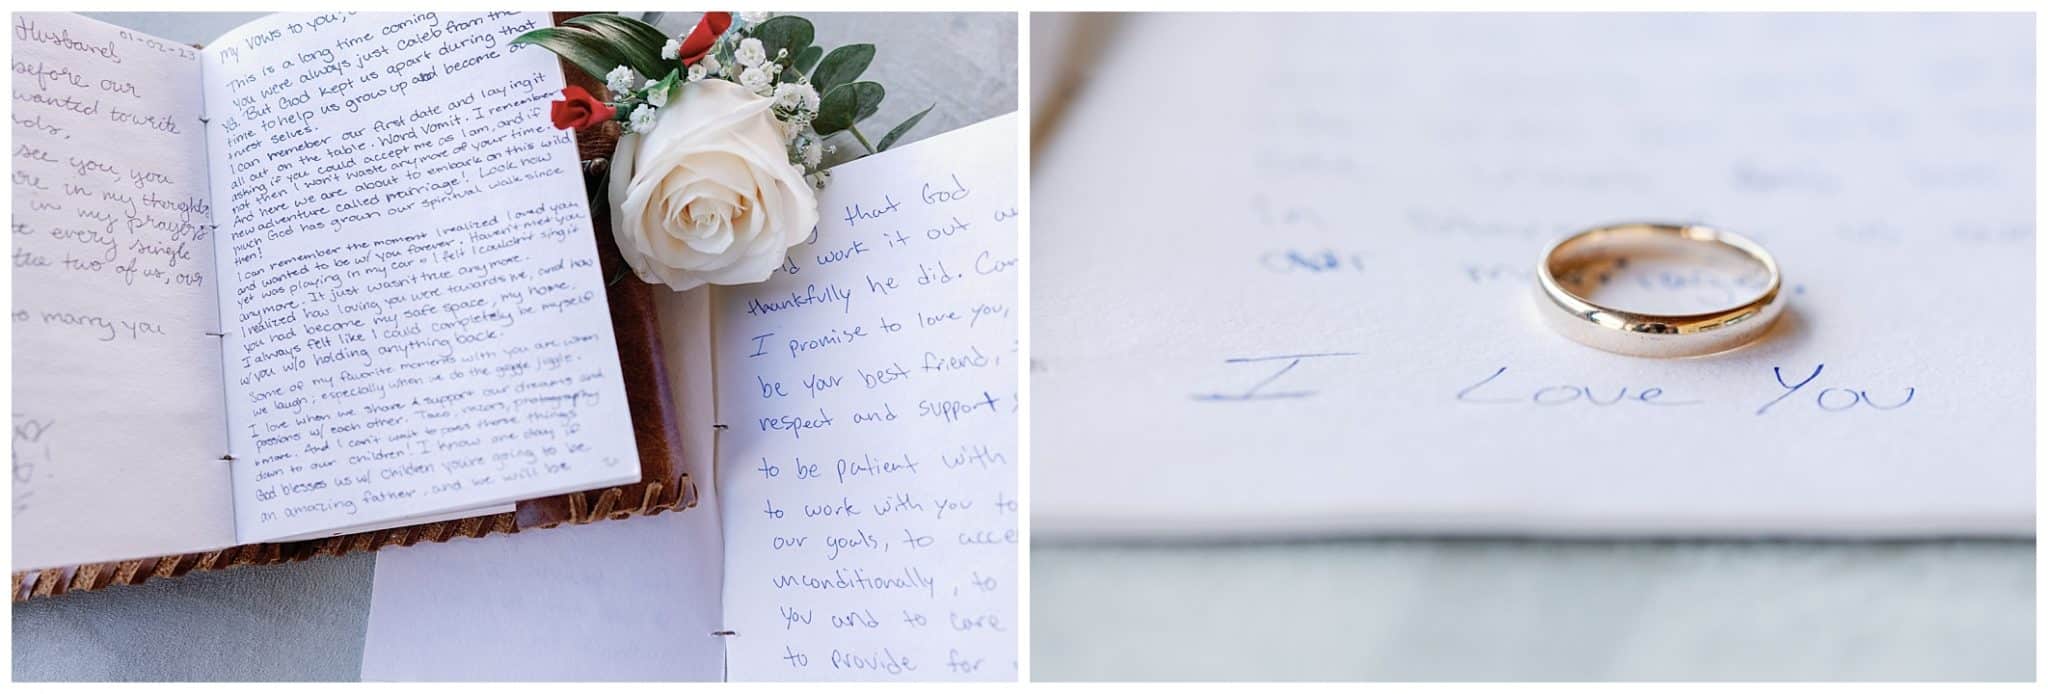 Husband 01-02-23
before our
wanted to write
see you, you
are in my thoughts
in my prayers
every single
the two of us, our
to marry you
My vows to you,
This is a long time coming
you were always just Caleb from the
But God kept us apart during that
time to help us grow up and become our
truest selves.
I can remeber our first date and laying it
all out on the table. Word vomit. I remember
asking if you could accept me as I am, and if
not then I won't waste anymore of your time.
And here we are about to embark on this wild
new adventure called marriage! Look how
much God has grown our spiritual walk since
then!
I can remember the moment I realized I loved you
and wanted to be w/ you forever. Haven't met you
yet was playing in my car & I felt I couldn't sing it
anymore. It just wasn't true anymore.
I realized how loving you were towards me, and how
you had become my safe space, my home.
I always felt like I could completely be myself
w/ you w/o holding anything back.
Some of my favorite moments with you are when
we laugh; especially when we do the giggle jiggle.
I love when we share & support our dreams and
passions w/ each other. Taco, razors, photography
& more. And I can't wait to pass those things
down to our children! I know one day if
God blesses us w/ children you're going to be
an amazing father, and we will be
that God
work it out
thankfully he did.
I promise to love you,
be your best friend,
respect and support
to be patient with
to work with you to
our goals, to
unconditionally, to
you and to care
to provide for
over
I Love You